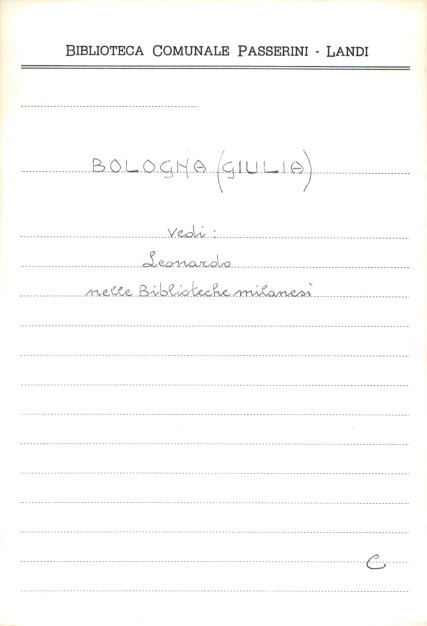 BIBLIOTECA COMUNALE PASSERINI - LANDI
BOLOGNA (GIULIA)
Vedi:
Leonardo
nelle Biblioteche milanesi
C